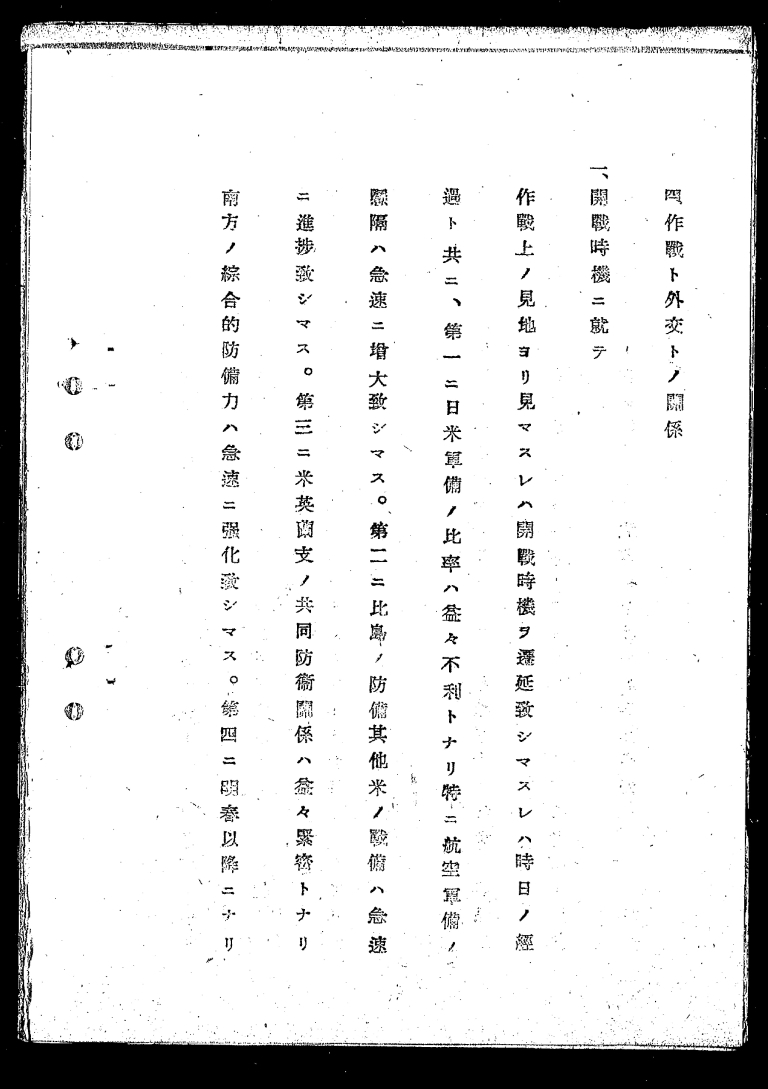 四、作戰ト外交トノ關係
一、開戰時機ニ就テ
作戰上ノ見地ヨリ見マスレハ開戰時機ヲ遷延致シマスレハ時日ノ經
過ト共ニ、第一ニ日米軍備ノ比率ハ益々不利トナリ特ニ航空軍備ノ
懸隔ハ急速ニ增大致シマス。第二ニ比島ノ防備其他米ノ戰備ハ急速
ニ進捗致シマス。第三ニ米英蘭支ノ共同防衞關係ハ益々緊密トナリ
南方ノ綜合的防備力ハ急速ニ强化致シマス。第四ニ明春以降ニナリ